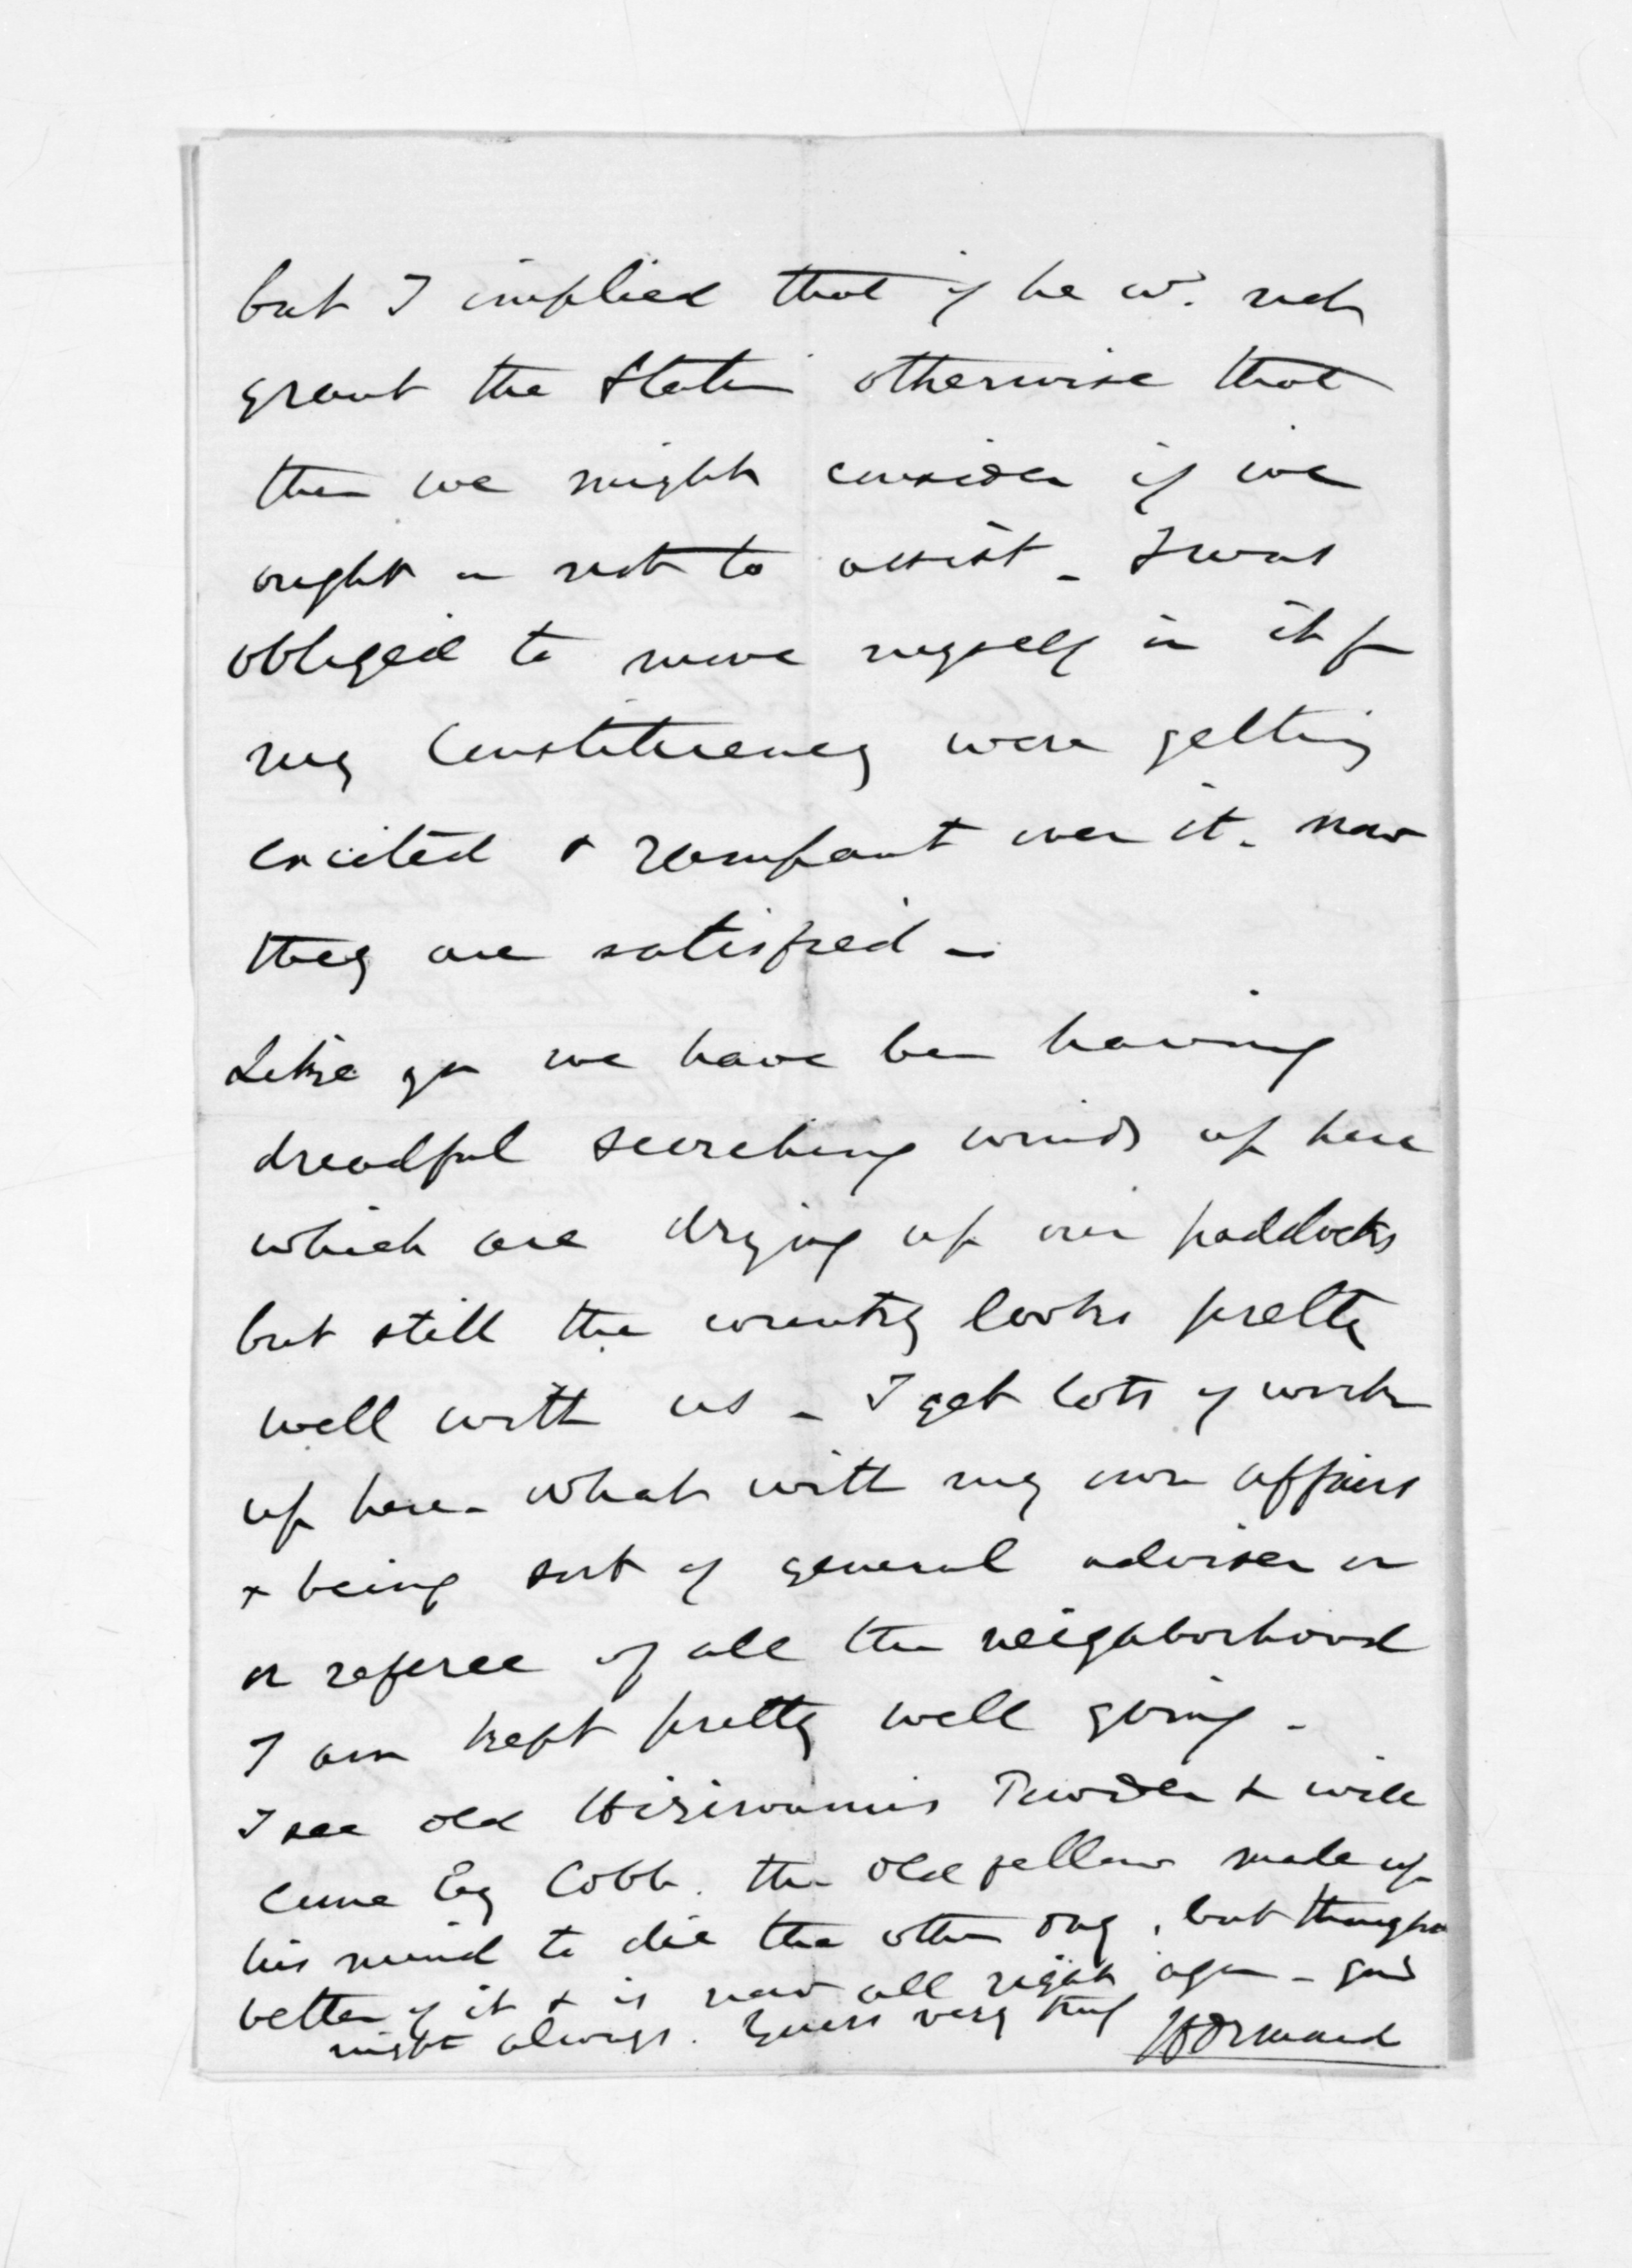 but I implied that if he wd. not
grant the Station otherwise that
then we might consider if we
ought or not to assist _ I was
obliged to move myself in it for
my Constituency were getting
excited & rampant over it. now
they are satisfied _
Like you we have been having
dreadful scorching winds up here
which are drying up our paddocks
but still the country looks pretty
well with us _ I get lots of work
up here. what with my own affairs
& being sort of general adviser or
or referee of all the neighborhood
I am kept pretty well going _
I see old Hiriwanu's & will
Cobb. the old fellow made up
his mind to die the other day, but thought
better of it & is now all right again _ good
night always. Yours very truly JDOrmond